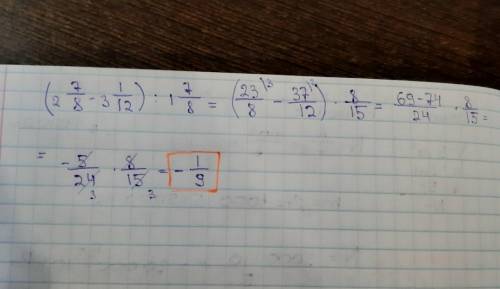 (2 7/8 - 3 1/12) : 1 7/8 = (23/8^3 - 37/12^2) · 8/15 = 69-74/24 · 8/15 =
= -5/24 3 · 8/15 3 = - 1/9